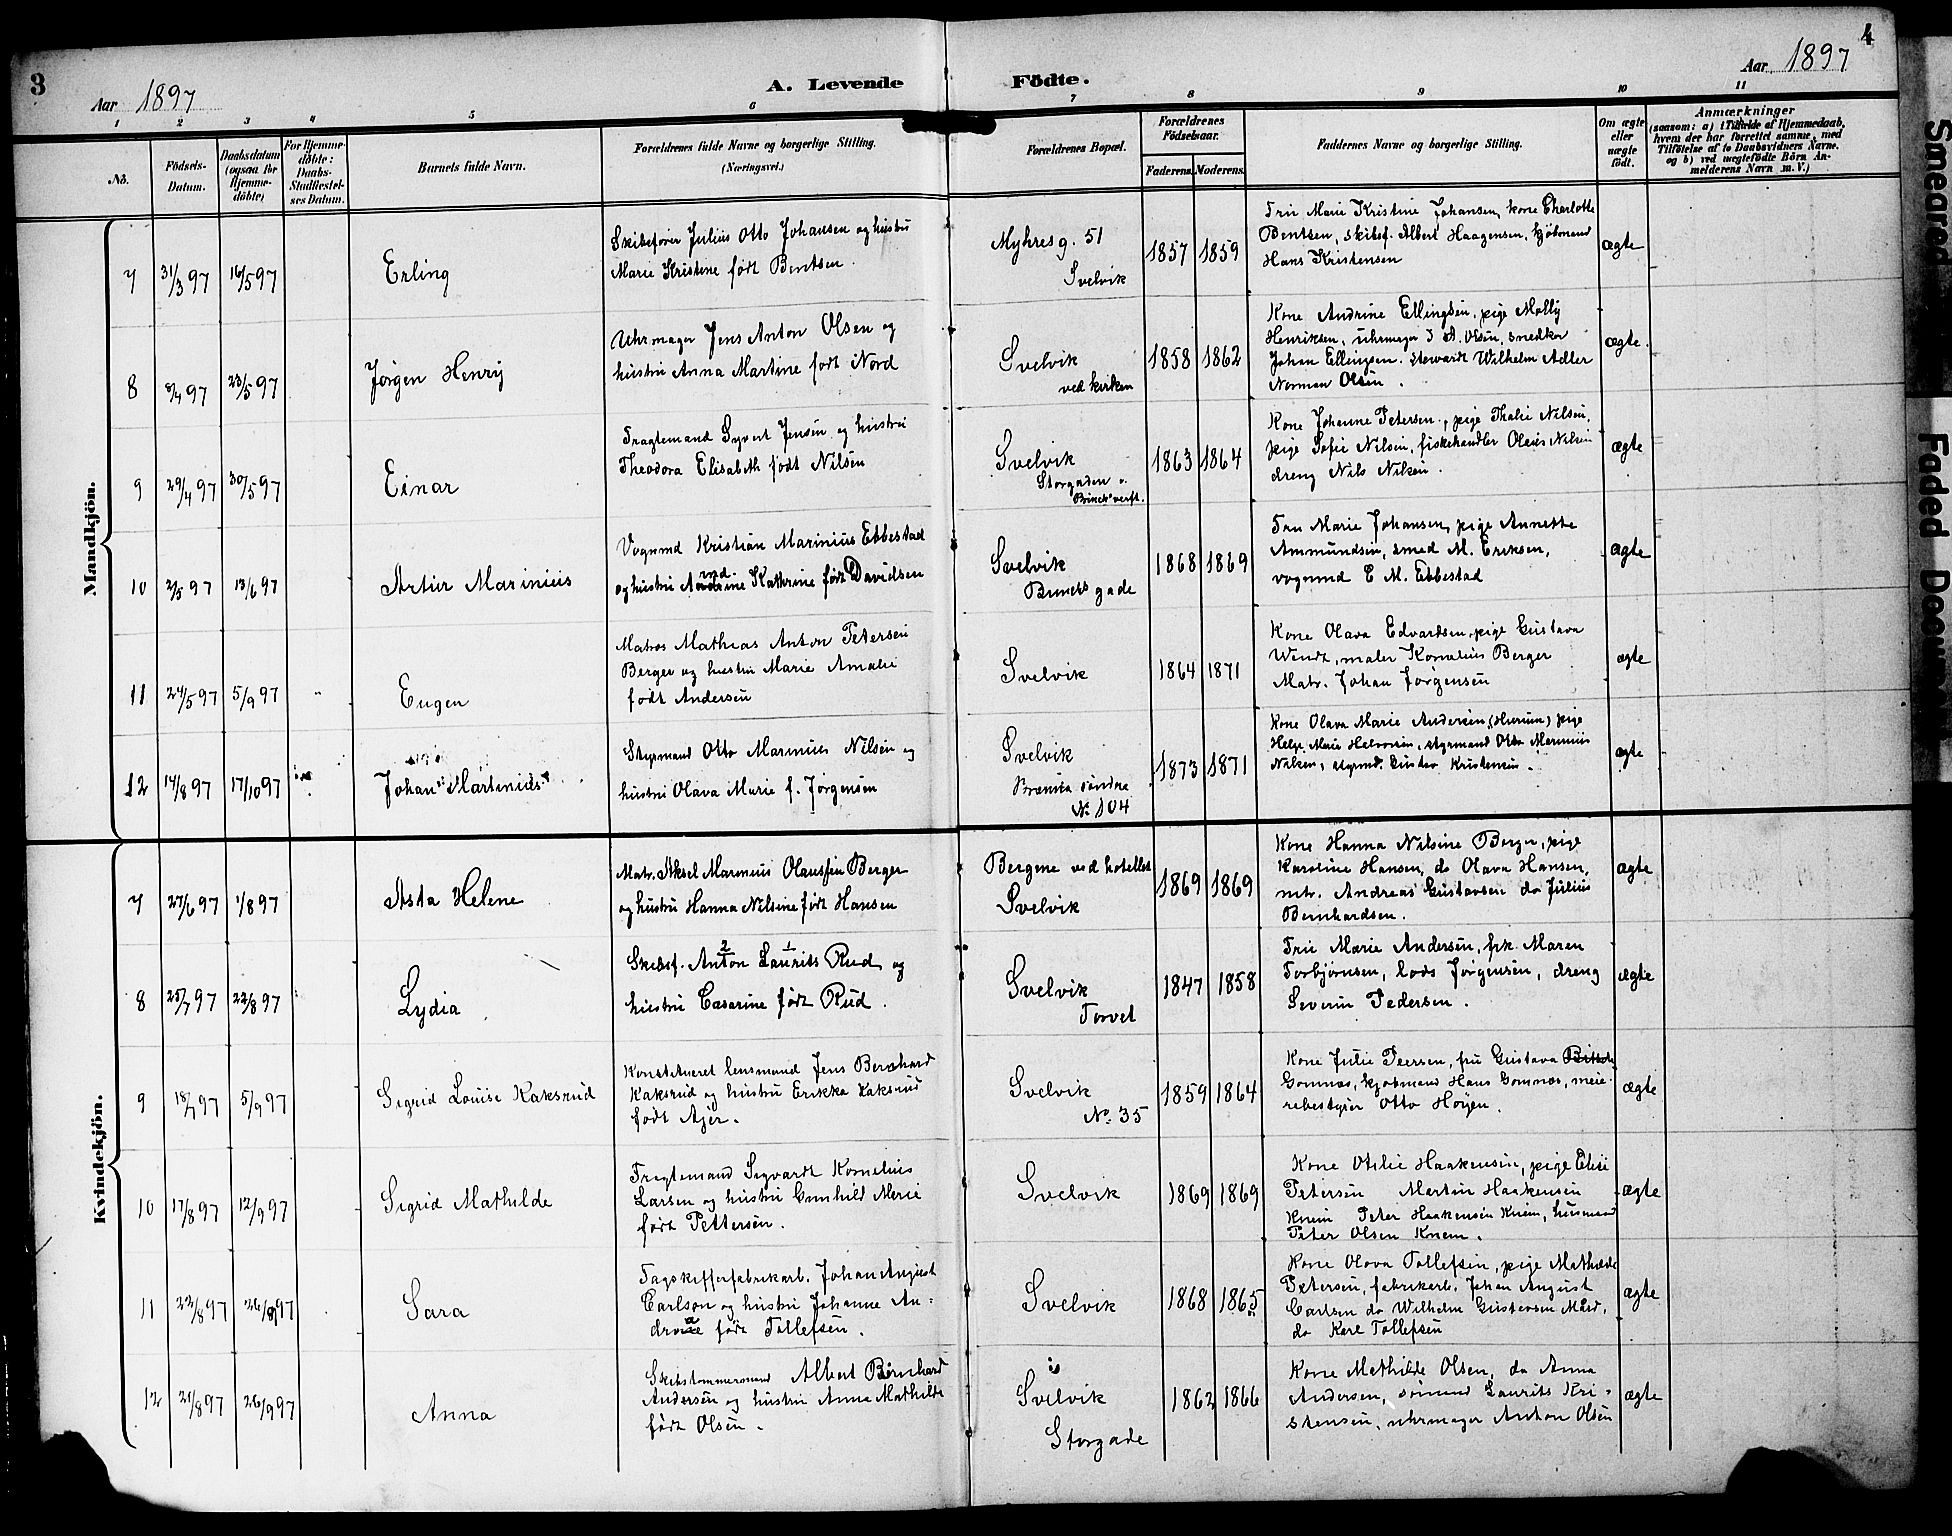 3
Aar 1897
A. Levende
Fødte.
Aar 1897
4
1 2 3 4 5 6 7 8 9 10 11
No.
Fødsels-Datum.
Daabsdatum (ogsaa for Hjemme-døbte)
For Hjemme-døbte: Daabs-Stadfæstel-ses Datum.
Barnets fulde Navn.
Forældrenes fulde Navne og borgerlige Stilling.
(Næringsvei.)
Forældrenes Bopæl.
Forældrenes Fødselsaar.
Faderens. Moderens.
Faddernes Navne og borgerlige Stilling.
Om ægte eller uægte født.
Anmærkninger
(saasom: a) i Tilfælde af Hjemmedaab,
hvem der har forrettet samme, med
Tilføielse af to Daabsvidners Navne,
og b) ved uægtefødte Børn An-
melderens Navn m. V.)
Mandkjön.
7 31/3 97 16/5 97 Erling
Skibsfører Julius Otto Johansen og hustru
Marie Kristine født Bentsen.
Myhresg. 51
Svelvik
1857 1859
Fru Marie Kristine Johansen, kone Charlotte
Bentsen, skibsf. Albert Haagensen, kjøbmand
Hans Kristensen
ægte
8 8/4 97 23/5 97 Jørgen Henry
Uhrmager Jens Anton Olsen og
hustru Anna Martine født Nord
Svelvik
ved kirken
1858 1862
Kone Andrine Ellingsen, pige Molly
Henriksen, uhrmager J. A. Olsen, snedker
Johan Ellingsen. Steward Wilhelm Adler
Norman Olsen.
ægte.
9 29/4 97 30/5 97 Einar
Fragtemand Syvert Jensen og hustru
Theodora Elisabeth født Nilsen
Svelvik
Storgaden v.
verft.
1863 1864
Kone Johanne Petersen, pige Thalie Nilsen,
pige Sofie Nilsen, fiskehandler Olaus Nilsen
dreng Nils Nilsen.
ægte
10 2/5 97 13/6 97 Artur Marinius
Vognmd Kristian Marinius Ebbestad
og hustru Andrine Kathrine født Davidsen
Svelvik
gade
1868 1869
Fru Marie Johansen, pige Annette
Ammundsen, smed M. Eriksen,
vognmd E. M. Ebbestad
ægte
11 24/5 97 5/9 97 Eugen
Matros Mathias Anton Petersen
Berger og hustru Marie Amalie
født Andersen
Svelvik
1864 1871
Kone Olava Edvardsen, pige Gustava
Wendt, maler Kornelius Berger
Matr. Johan Jørgensen
ægte
12 14/8 97 17/10 97 Johan Martinius
Styrmand Otto Marinius Nilsen og
hustru Olava Marie f. Jørgensen
Svelvik
søndre
No 104
1873 1871
Kone Olava Marie Andersen (Hurum) pige
Helga Marie Halvorsen, styrmand Otto Marinius
Nilsen, styrmd. Gustav Kristensen.
ægte
Kvindekjön.
7 27/6 97 1/8 97 Asta Helene
Matr. Aksel Marinius Olaussen Berger
og hustru Hanna Nilsine født Hansen
Bergene ved hotellet
Svelvik
1869 1869
Kone Hanna Nilsine Berger, pige
Karoline Hansen, do Olava Hansen,
mtr. Andreas Gustavsen do Julius
Bernhardsen.
ægte
8 25/7 97 22/8 97 Lydia
2 1
Skibsf. Anton Laurits Rud og
hustru Casarine født Rud.
Svelvik
Torvet
1847 1858
Fru Marie Andersen, frk. Maren
Torbjørnsen, lods Jørgensen, dreng
Severin Pedersen.
ægte
9 18/7 97 5/9 97 Sigrid Louise Kaksrud
Konstitueret lensmand Jens Bernhard
Kaksrud og hustru Erikka Kaksrud
født Ajer.
Svelvik
No. 35
1859 1864
Kone Julie Peersen, fru Gustava
Gomnæs, kjøbmand Hans Gomnæs, meie-
ribestyrer Otto Høyen.
ægte
10 17/8 97 12/9 97 Sigrid Mathilde
Fragtemand Sigvardt Kornelius
Larsen og hustru Gunhild Marie
født Pettersen.
Svelvik
1869 1869
Kone Otilie Haakensen, pige Elise
Petersen Martin Haakensen
Knem Peter Haakensen Knem, husmand
Peter Olsen Knem.
ægte
11 22/8 97 26/9 97 Sara
Tagskifferfabrikarb. Johan August
Carlson og hustru Johanne An-
drea født Tollefsen.
Svelvik
1868 1865
Kone Olava Tollefsen, pige Mathilde
Petersen, fabrikarb. Johan August
Carlsen do Wilhelm Gustavsen
do Karl Tollefsen
ægte
12 21/8 97 26/9 97 Anna
Skibstømmermand Albert Bernhard
Andersen og hustru Anna Mathilde
født Olsen.
Svelvik
Storgade
1862 1866
Kone Mathilde Olsen, do Anna
Andersen, sømand Laurits Kri-
stensen, uhrmager Anton Olsen
ægte
Smeared
Faded